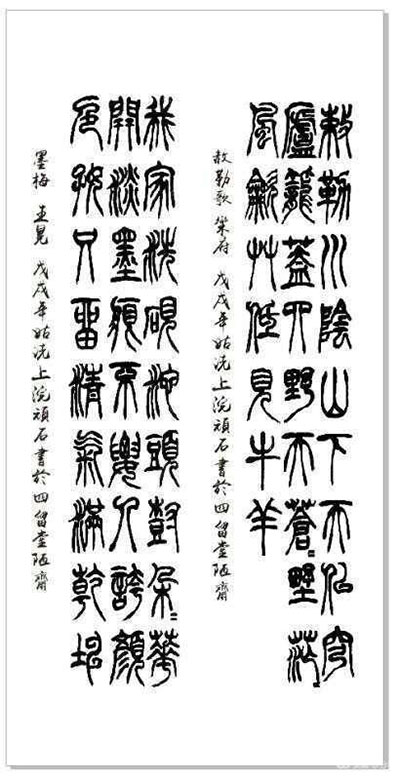 敕勒川陰山下天似穹
廬籠蓋四野天蒼〻野茫〻
風龡艸低見牛羊
敕勒歌 樂府 戊戌年姑洗上浣頑石書於四留堂陋齋
我家洗硯池頭樹朵〻華
開淡墨痕不要人誇顏
色好只留清氣滿乾坤
墨梅 王冕 戊戌年姑洗上浣頑石書於四留堂陋齋